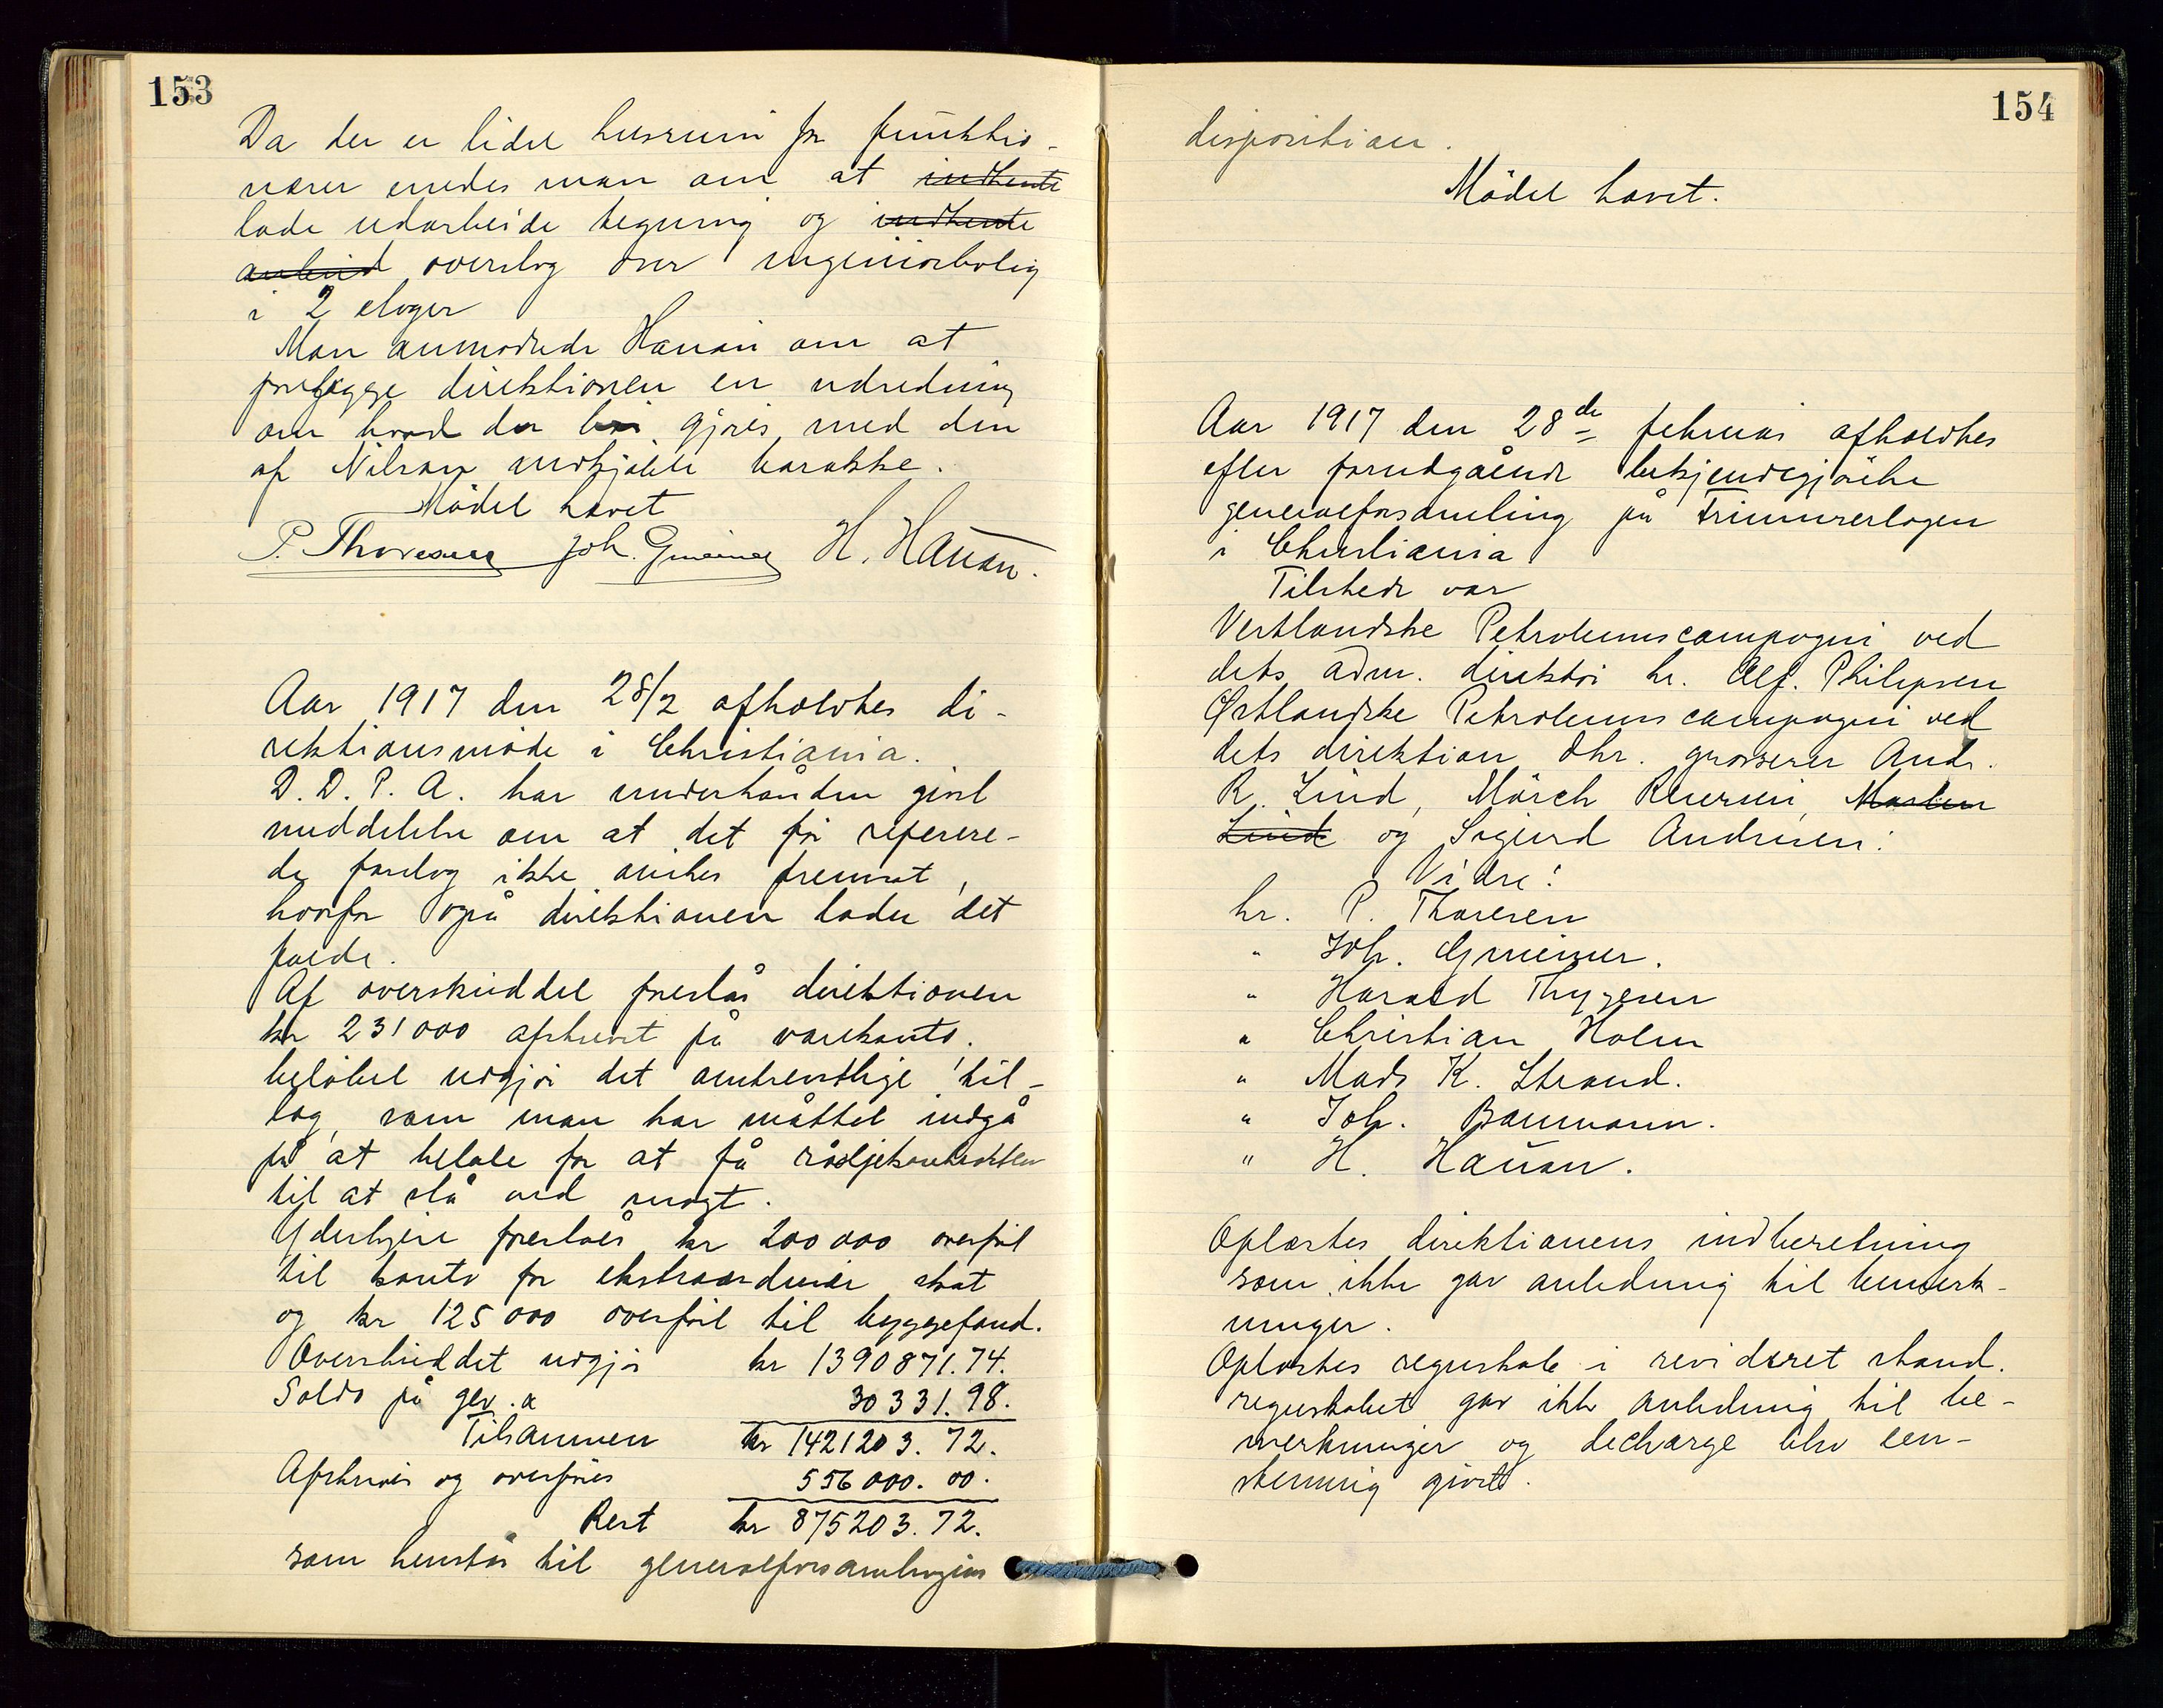 153
Da der er lidet husrum for funktio-
nærer enedes man om at indhente
lade udarbeide tegning og indhente
anbud overslag over ingeniørbolig
i 2 etager
Man anmodede Hauan om at
forelægge direktionen en udredning
om hvad der bør gjøres med den
af Nilsen indkjøbte barakke.
Mödet hævet
P. Thoresen Joh. Grieiner H. Hauan.
Aar 1917 den 28/2 afholdtes di-
rektionsmøde i Christiania.
D. D. P. A. har underhånden givet
meddelelse om at det før referere-
de forslag ikke ønskes fremsat,
hvorfor også direktionen lader det
falde.
Af overskuddet foreslår direktionen
kr 231000 afskrevet på varekonto.
beløbet udgjør det omtrentlige til-
læg, som man har måttet indgå
på at betale for at få råoljekontrakten
til at stå ved magt.
Yderligere foreslåes kr 200000 overført
til konto for ekstraordinær skat
og kr 125000 overført til byggefond.
Overskuddet udgjør kr 1390871.74.
Saldo på gev. a 30331.98.
Tilsammen kr 1421203.72.
Afskrives og overføres 556000.00.
Rest kr 875203.72.
som henstår til generalforsamlingens
154
disposition.
Mödet hævet.
Aar 1917 den 28de februar afholdtes
efter forudgående bekjendtgjørelse
generalforsamling på Frimurerlogen
i Christiania
Tilstede var
Vestlandske Petroleumscompagni ved
dets adm. direktør hr. Alf. Philipsen
Østlandske Petroleumscompagni ved
dets direktion dhr. grosserer Andr.
R. Lind, Mörch Reiersen, Morten
Lind og Sigurd Andresen.
Vidre:
hr. P. Thoresen
" Joh. Grieiner.
" Harald Thygesen
" Christian Holm
" Mads K. Strand.
" Joh. Baumann.
" H. Hauan.
Oplæstes direktionens indberetning
som ikke gav anledning til bemærk-
ninger.
Oplæstes regnskab i revideret stand.
regnskabet gav ikke anledning til be-
mærkninger og decharge blev een-
stemmig givet.